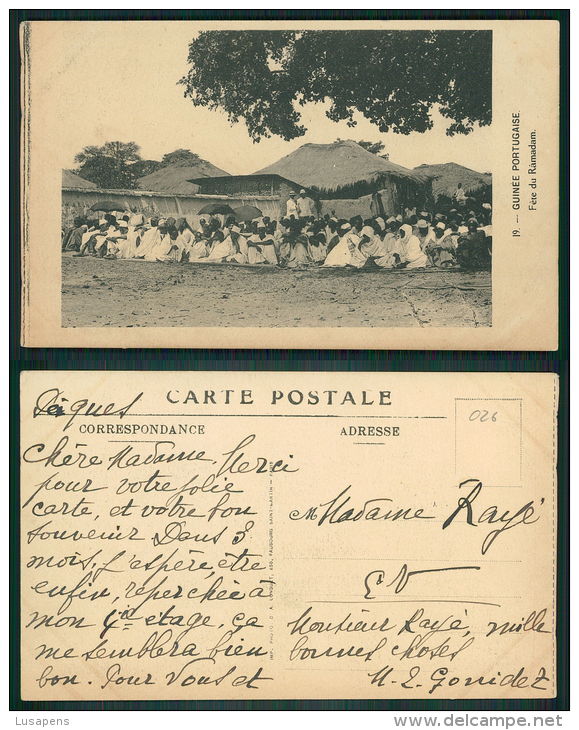 19. — GUINÉE PORTUGAISE.
Fête du Ràmadam.
CARTE POSTALE
CORRESPONDANCE
ADRESSE
026
Pâques
Chère Madame, Merci
pour votre jolie
carte, et votre bon
souvenir. Dans 3
mois, j'espère, être
enfin, reperchée à
mon 4e étage. ça
me semblera bien
bon. Pour Vous et
Madame Rayé
EV
Monsieur Rayé, mille
bonnes choses
Lusapens
www.delcampe.net